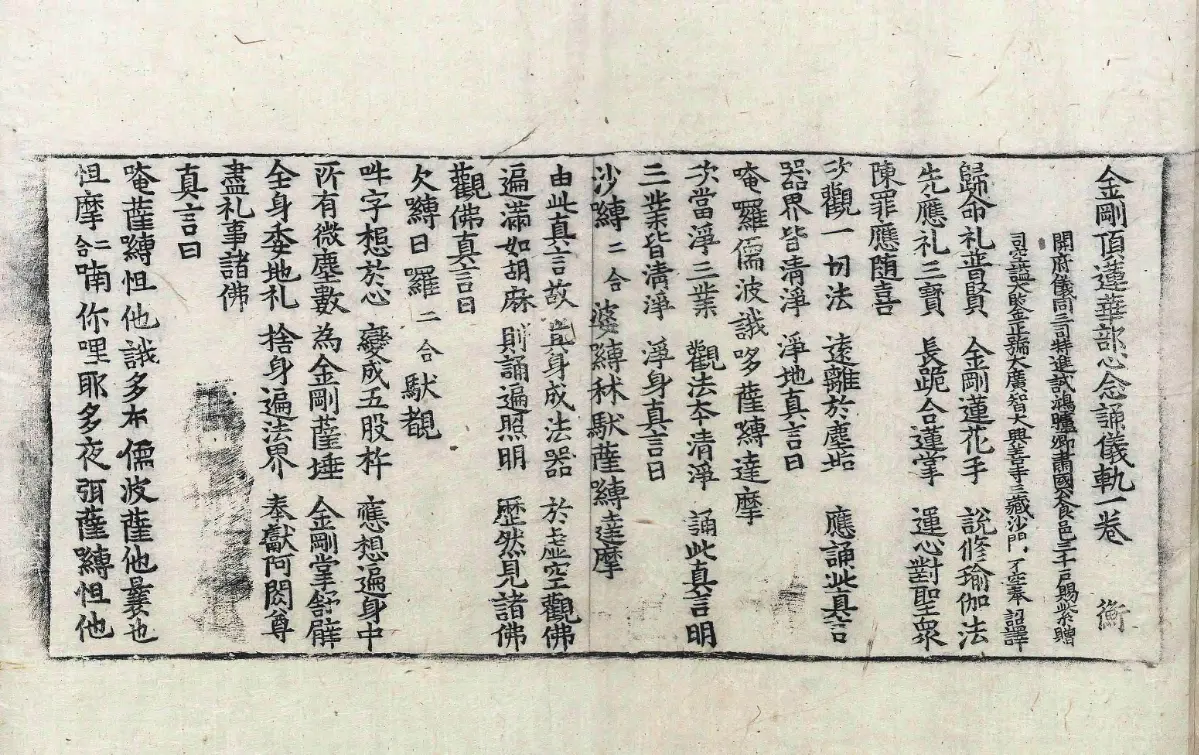 金剛頂蓮華部心念誦儀軌一卷 衡
開府儀同三司特進試鴻臚卿肅國公食邑三千戶賜紫贈
司空謚大鑒正號大廣智大興善寺三藏沙門不空奉 詔譯
歸命礼普賢 金剛蓮花手 說修瑜伽法
先應礼三寳 長跪合蓮掌 運心對聖衆
陳罪應随喜
次觀一切法 遠離於塵垢 應誦此真言
器界皆清淨 淨地真言曰
唵囉儒波誐哆薩嚩達摩
次當淨三業 觀法本清淨 誦此真言明
三業皆清淨 淨身真言曰
沙嚩二合婆嚩秫馱薩嚩達摩
由此真言故 此身成法器 於虛空觀佛
遍滿如胡麻 則誦遍照明 歷然見諸佛
觀佛真言曰
欠嚩日囉二合馱覩
吽字想於心 變成五股杵 應想遍身中
所有微塵數 為金剛薩埵 金剛掌舒臂
全身委地礼 捨身遍法界 奉獻阿閦尊
盡礼事諸佛
真言曰
唵薩嚩怛他誐多布儒波薩他曩也
怛摩二合喃你哩耶多夜弭薩嚩怛他